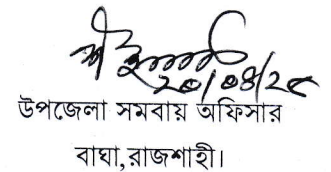 ২০/০৪/২৫
উপজেলা সমবায় অফিসার
বাঘা,রাজশাহী।